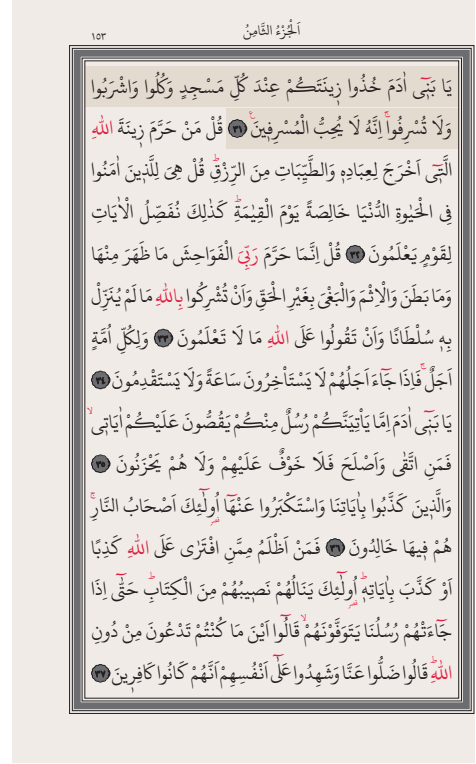 اَلْجُزْءُ الثَّامِنُ
١٥٣
يَا بَنٖٓي اٰدَمَ خُذُوا زٖينَتَكُمْ عِنْدَ كُلِّ مَسْجِدٍ وَكُلُوا وَاشْرَبُوا
وَلَا تُسْرِفُواۚ اِنَّهُ لَا يُحِبُّ الْمُسْرِفٖينَۚ ٣١ قُلْ مَنْ حَرَّمَ زٖينَةَ اللّٰهِ
الَّتٖٓي اَخْرَجَ لِعِبَادِهٖ وَالطَّيِّبَاتِ مِنَ الرِّزْقِؕ قُلْ هِيَ لِلَّذٖينَ اٰمَنُوا
فِي الْحَيٰوةِ الدُّنْيَا خَالِصَةً يَوْمَ الْقِيٰمَةِؕ كَذٰلِكَ نُفَصِّلُ الْاٰيَاتِ
لِقَوْمٍ يَعْلَمُونَ ٣٢ قُلْ اِنَّمَا حَرَّمَ رَبِّيَ الْفَوَاحِشَ مَا ظَهَرَ مِنْهَا
وَمَا بَطَنَ وَالْاِثْمَ وَالْبَغْيَ بِغَيْرِ الْحَقِّ وَاَنْ تُشْرِكُوا بِاللّٰهِ مَا لَمْ يُنَزِّلْ
بِهٖ سُلْطَانًا وَاَنْ تَقُولُوا عَلَى اللّٰهِ مَا لَا تَعْلَمُونَ ٣٣ وَلِكُلِّ اُمَّةٍ
اَجَلٌۚ فَاِذَا جَٓاءَ اَجَلُهُمْ لَا يَسْتَأْخِرُونَ سَاعَةً وَلَا يَسْتَقْدِمُونَ ٣٤
يَا بَنٖٓي اٰدَمَ اِمَّا يَأْتِيَنَّكُمْ رُسُلٌ مِنْكُمْ يَقُصُّونَ عَلَيْكُمْ اٰيَاتٖيۙ
فَمَنِ اتَّقٰى وَاَصْلَحَ فَلَا خَوْفٌ عَلَيْهِمْ وَلَا هُمْ يَحْزَنُونَ ٣٥
وَالَّذٖينَ كَذَّبُوا بِاٰيَاتِنَا وَاسْتَكْبَرُوا عَنْهَٓا اُو۬لٰٓئِكَ اَصْحَابُ النَّارِۚ
هُمْ فٖيهَا خَالِدُونَ ٣٦ فَمَنْ اَظْلَمُ مِمَّنِ افْتَرٰى عَلَى اللّٰهِ كَذِبًا
اَوْ كَذَّبَ بِاٰيَاتِهٖؕ اُو۬لٰٓئِكَ يَنَالُهُمْ نَصٖيبُهُمْ مِنَ الْكِتَابِؕ حَتّٰٓى اِذَا
جَٓاءَتْهُمْ رُسُلُنَا يَتَوَفَّوْنَهُمْۙ قَالُٓوا اَيْنَ مَا كُنْتُمْ تَدْعُونَ مِنْ دُونِ
اللّٰهِؕ قَالُوا ضَلُّوا عَنَّا وَشَهِدُوا عَلٰٓى اَنْفُسِهِمْ اَنَّهُمْ كَانُوا كَافِرٖينَ ٣٧